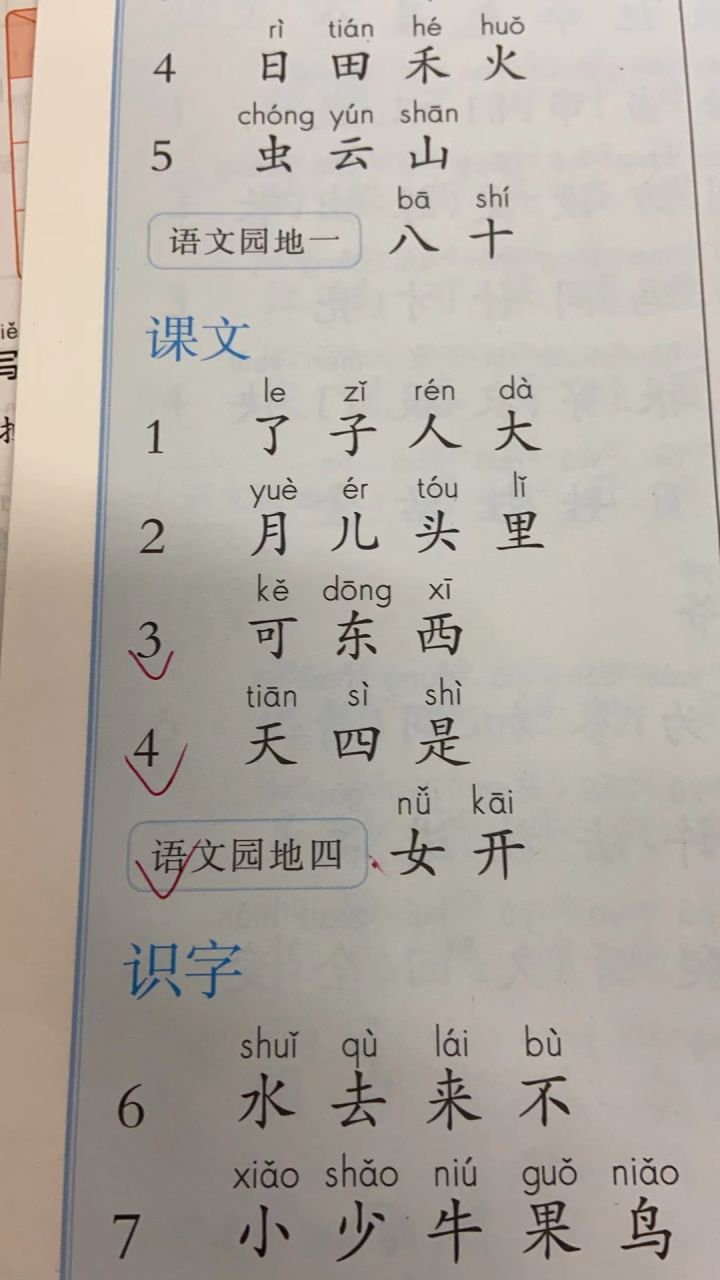 rì tián hé huǒ
4 日 田 禾 火
chóng yún shān
5 虫 云 山
bā shí
语文园地一 八 十
课文
le zǐ rén dà
1 了 子 人 大
yuè ér tóu lǐ
2 月 儿 头 里
kě dōng xī
3 可 东 西
tiān sì shì
4 天 四 是
nǚ kāi
语文园地四 女 开
识字
shuǐ qù lái bù
6 水 去 来 不
xiǎo shǎo niú guǒ niǎo
7 小 少 牛 果 鸟